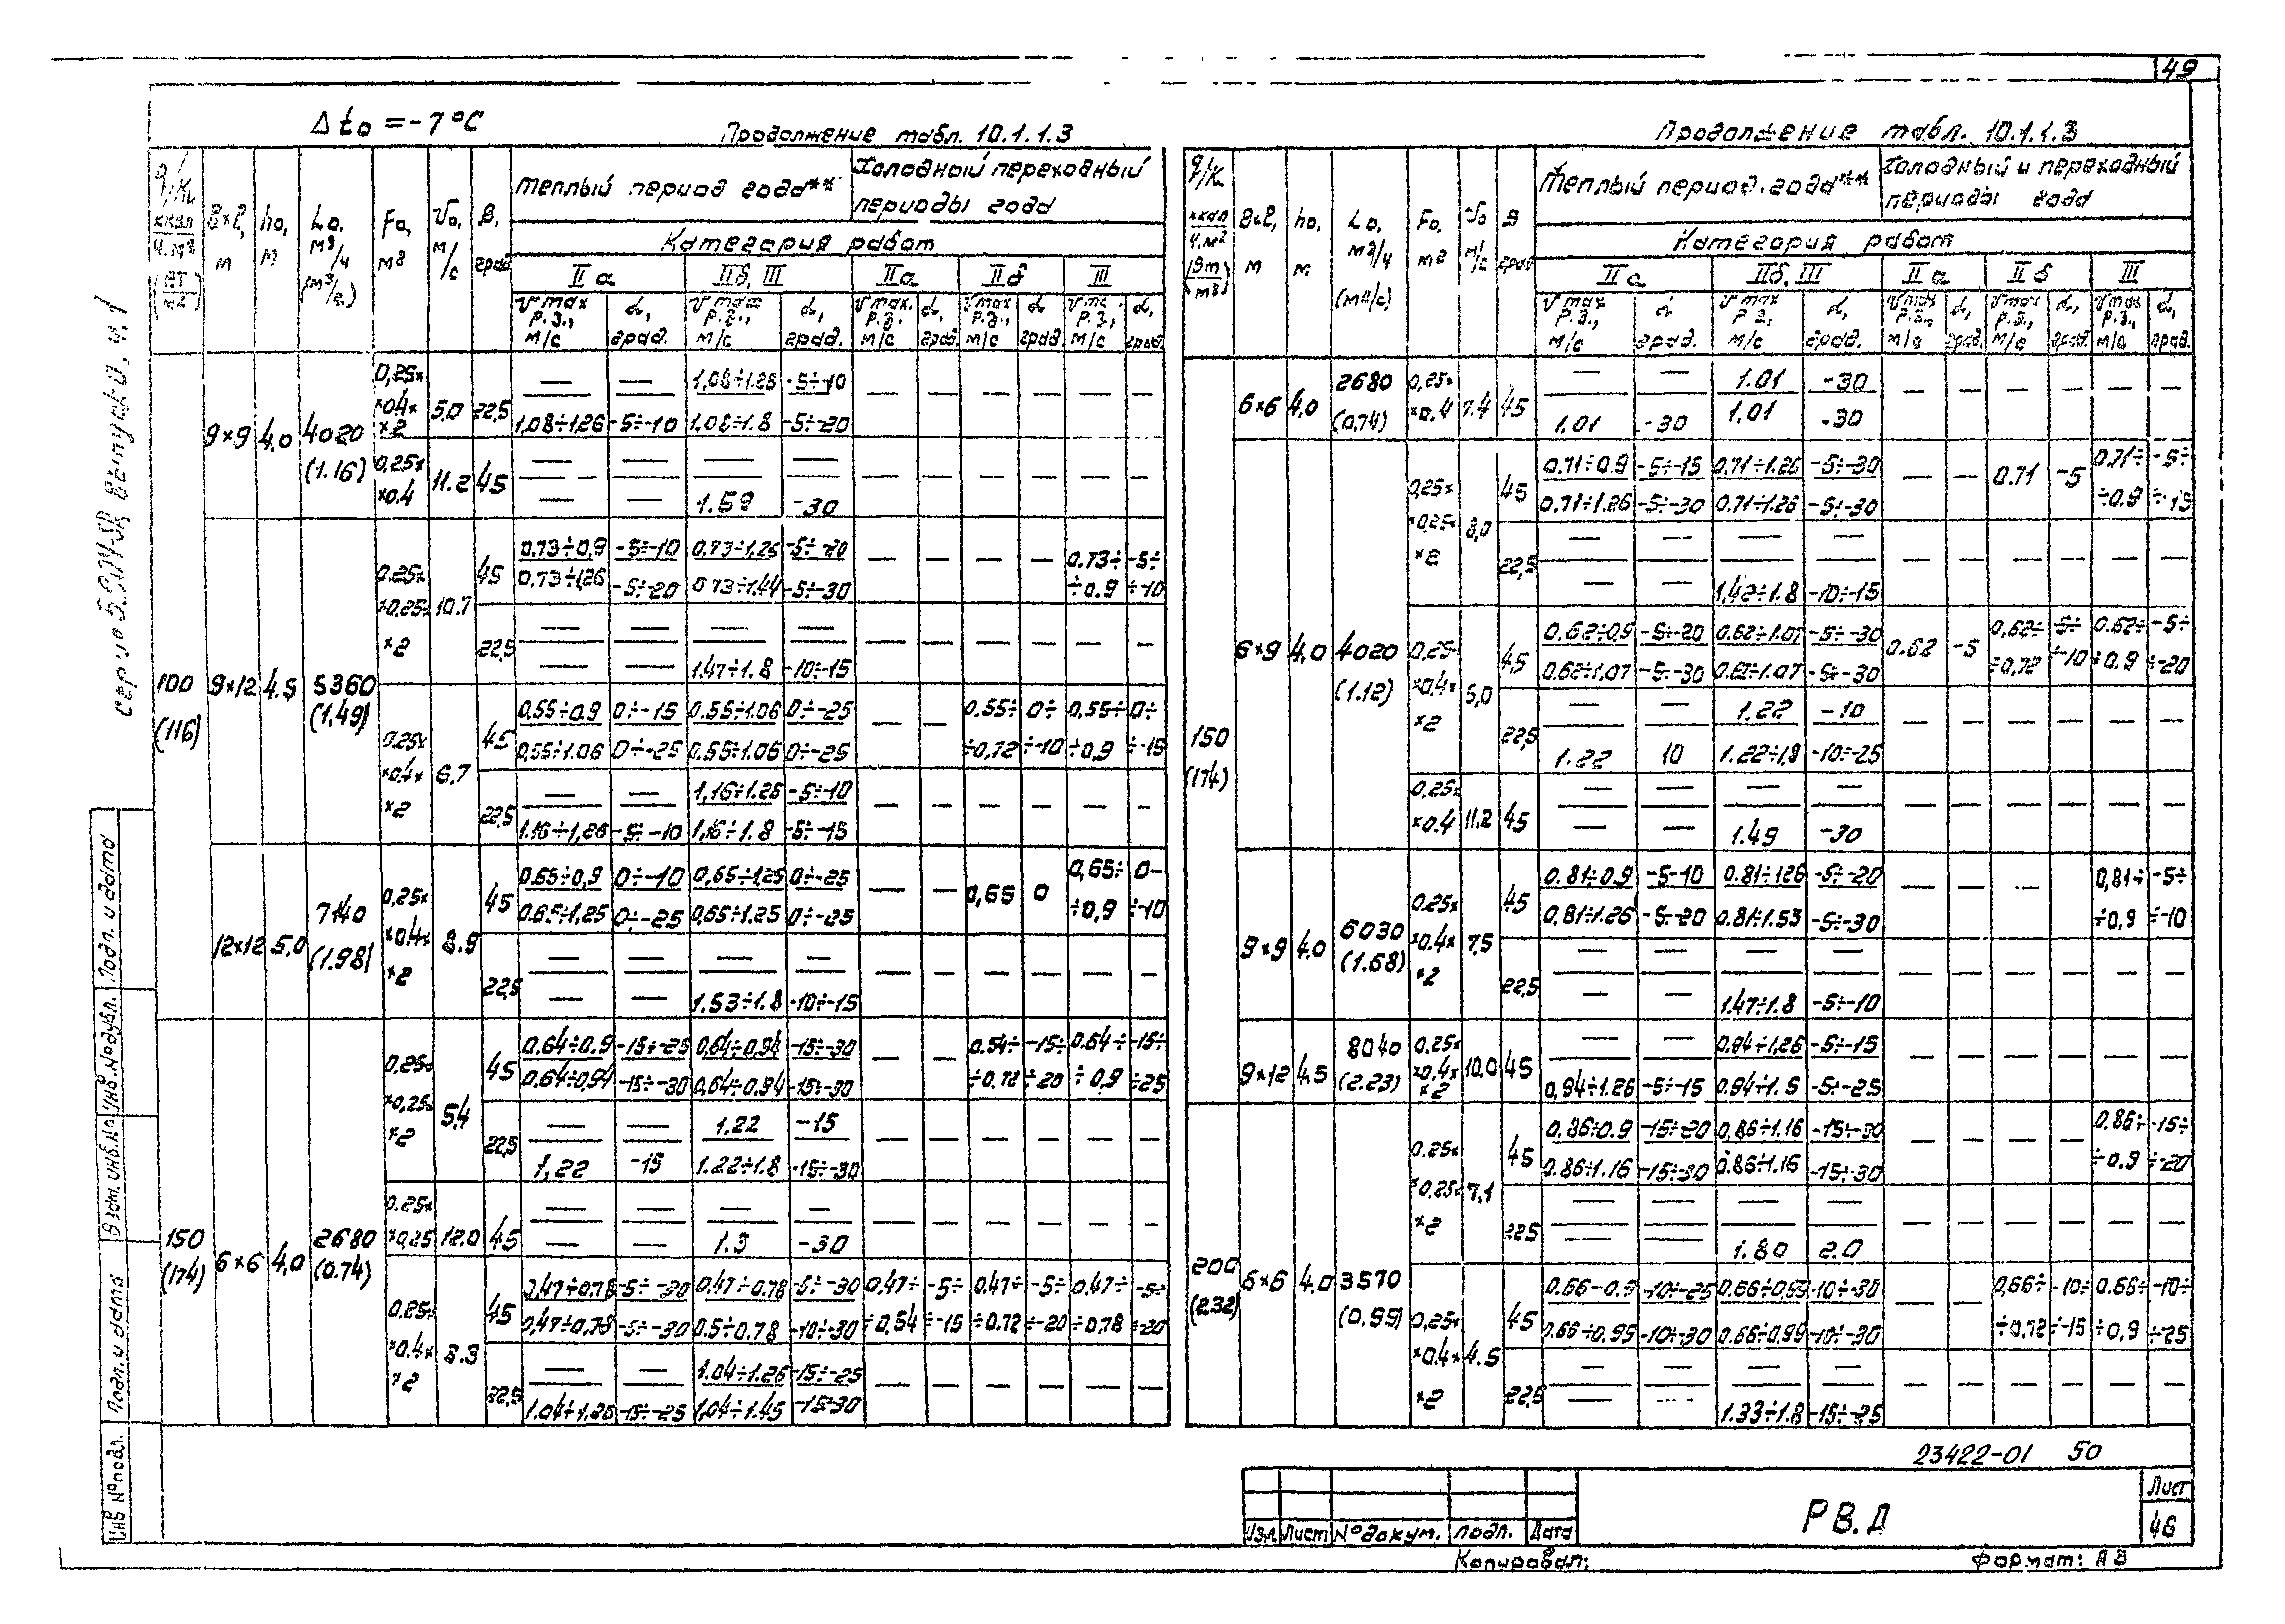 49
Δt₀ = -7°C
Продолжение табл. 10.1.1.3
q/к, ккал/ч.м² (Вт/м²) | в×l, м | h₀, м | L₀, м³/ч (м³/с) | F₀, м² | V₀, м/с | β, град | теплый период года** | Холодный переходный периоды года
Категория работ
IIа | IIб, III | IIа | IIб | III
Vmax р.з., м/с | α, град. | Vmax р.з., м/с | α, град. | Vmax р.з. м/с | α, град. | Vmax р.з., м/с | α, град. | Vmax р.з., м/с | α, град.
100 (116)
9×9 | 4.0 | 4020 (1.16) | 0,25×0.4××2 | 5,0 | 22,5 | — | — | 1,08÷1.26 | -5÷-10 | — | — | — | — | — | —
1,08÷1,26 | -5÷-10 | 1.08÷1.8 | -5÷-20
0.25××0.4 | 11.2 | 45 | — | — | — | — | — | — | — | — | — | —
— | — | 1.59 | -30
9×12 | 4.5 | 5360 (1,49) | 0.25××0.25××2 | 10.7 | 45 | 0.73÷0,9 | -5÷-10 | 0,73÷1.26 | -5÷-20 | — | — | — | — | 0.73÷÷0.9 | -5÷÷-10
0,73÷1,26 | -5÷-20 | 0.73÷1.44 | -5÷-30
22,5 | — | — | — | — | — | — | — | — | — | —
— | — | 1.47÷1.8 | -10÷-15
0.25××0.4××2 | 6,7 | 45 | 0,55÷0.9 | 0÷-15 | 0.55÷1.06 | 0÷-25 | — | — | 0.55÷÷0,72 | 0÷÷-10 | 0,55÷÷0,9 | 0÷÷-15
0,55÷1.06 | 0÷-25 | 0.55÷1.06 | 0÷-25
22,5 | — | — | 1,16÷1.26 | -5÷-10 | — | — | — | — | — | —
1.16÷1,26 | -5÷-10 | 1,16÷1.8 | -5÷-15
12×12 | 5,0 | 7140 (1.98) | 0,25××0.4××2 | 8.9 | 45 | 0.65÷0,9 | 0÷-10 | 0,65÷1,25 | 0÷-25 | — | — | 0,65 | 0 | 0,65÷÷0,9 | 0-÷-10
0.65÷1,25 | 0÷-25 | 0,65÷1.25 | 0÷-25
22,5 | — | — | — | — | — | — | — | — | — | —
— | — | 1.53÷1.8 | -10÷-15
150 (174)
6×6 | 4,0 | 2680 (0.74) | 0,25××0,25××2 | 5,4 | 45 | 0,64÷0.9 | -15÷-25 | 0,64÷0,94 | -15÷-30 | — | — | 0.64÷÷0,72 | -15÷÷20 | 0.64÷÷0,9 | -15÷÷25
0.64÷0,94 | -15÷-30 | 0,64÷0.94 | -15÷-30
22,5 | — | — | 1.22 | -15 | — | — | — | — | — | —
1,22 | -15 | 1.22÷1.8 | -15÷-30
0.25××0,25 | 12.0 | 45 | — | — | — | — | — | — | — | — | — | —
— | — | 1.9 | -30
0.25××0.4××2 | 3.3 | 45 | 0,47÷0,78 | -5÷-30 | 0.47÷0.78 | -5÷-30 | 0,47÷÷0,54 | -5÷÷-15 | 0.47÷÷0.72 | -5÷÷-20 | 0,47÷÷0,78 | -5÷÷20
0,47÷0,78 | -5÷-30 | 0.5÷0.78 | -10÷-30
22,5 | — | — | 1.04÷1.26 | -15÷-25 | — | — | — | — | — | —
1.04÷1.26 | -15÷-25 | 1,04÷1.45 | -15÷30
Продолжение табл. 10.1.1.3
q/к, ккал/ч.м² (Вт/м²) | в×l, м | h₀, м | L₀, м³/ч (м³/с) | F₀, м² | V₀ м/с | β град | Теплый период года** | Холодный и переходный периоды года
Категория работ
IIа | IIб, III | IIа | IIб | III
Vmax р.з., м/с | α град. | Vmax р.з., м/с | α, град. | Vmax р.з., м/с | α, град. | Vmax р.з., м/с | α, град. | Vmax р.з., м/с | α, град.
150 (174)
6×6 | 4,0 | 2680 (0,74) | 0,25××0.4 | 7.4 | 45 | — | — | 1.01 | -30 | — | — | — | — | — | —
1,01 | -30 | 1,01 | -30
6×9 | 4,0 | 4020 (1.12) | 0,25××0,25××2 | 8,0 | 45 | 0.71÷0.9 | -5÷-15 | 0,71÷1.26 | -5÷-30 | — | — | 0.71 | -5 | 0.71÷÷0.9 | -5÷÷-15
0.71÷1.26 | -5÷-30 | 0.71÷1.26 | -5÷-30
22,5 | — | — | — | — | — | — | — | — | — | —
— | — | 1,42÷1.8 | -10÷-15
0.25××0,4××2 | 5,0 | 45 | 0.62÷0,9 | -5÷-20 | 0.62÷1.07 | -5÷-30 | 0.62 | -5 | 0,62÷÷0,72 | -5÷÷-10 | 0.62÷÷0,9 | -5÷÷-20
0.62÷1.07 | -5÷-30 | 0.62÷1.07 | -5÷-30
22,5 | — | — | 1.22 | -10 | — | — | — | — | — | —
1.22 | 10 | 1.22÷1,8 | -10÷-25
0,25××0.4 | 11.2 | 45 | — | — | — | — | — | — | — | — | — | —
— | — | 1.49 | -30
9×9 | 4.0 | 6030 (1.68) | 0.25××0.4××2 | 7,5 | 45 | 0.81÷0.9 | -5-10 | 0.81÷1.26 | -5÷-20 | — | — | — | — | 0,81÷÷0,9 | -5÷÷-10
0,81÷1.26 | -5÷-20 | 0.81÷1.53 | -5÷-30
22,5 | — | — | — | — | — | — | — | — | — | —
— | — | 1.47÷1.8 | -5÷-10
9×12 | 4,5 | 8040 (2.23) | 0.25××0.4××2 | 10,0 | 45 | — | — | 0,94÷1,26 | -5÷-15 | — | — | — | — | — | —
0,94÷1.26 | -5÷-15 | 0.94÷1.5 | -5÷-25
200 (232)
6×6 | 4.0 | 3570 (0.99) | 0.25××0,25××2 | 7,1 | 45 | 0.86÷0.9 | -15÷20 | 0,86÷1.16 | -15÷-30 | — | — | — | — | 0.86÷÷0.9 | -15÷÷-20
0.86÷1.16 | -15÷30 | 0.86÷1.16 | -15÷-30
22,5 | — | — | — | — | — | — | — | — | — | —
— | — | 1.80 | 2.0
0,25××0.4××2 | 4.5 | 45 | 0.66-0.9 | -10÷-25 | 0.66÷0,99 | -10÷-30 | — | — | 0,66÷÷0,72 | -10÷÷-15 | 0.66÷÷0,9 | -10÷÷25
0.66÷0,99 | -10÷-30 | 0.66÷0,99 | -10÷-30
22,5 | — | — | — | — | — | — | — | — | — | —
— | — | 1.33÷1.8 | -15÷-25
23422-01 50
Изм. Лист № докум. подп. Дата
РВ.Д
Лист
46
Копировал:
Формат: А3
серия 5.904-58, выпуск 0, ч.1
Подп. и дата
Взам. инв. № Инв. № дубл.
Подп. и дата
Инв № подл.